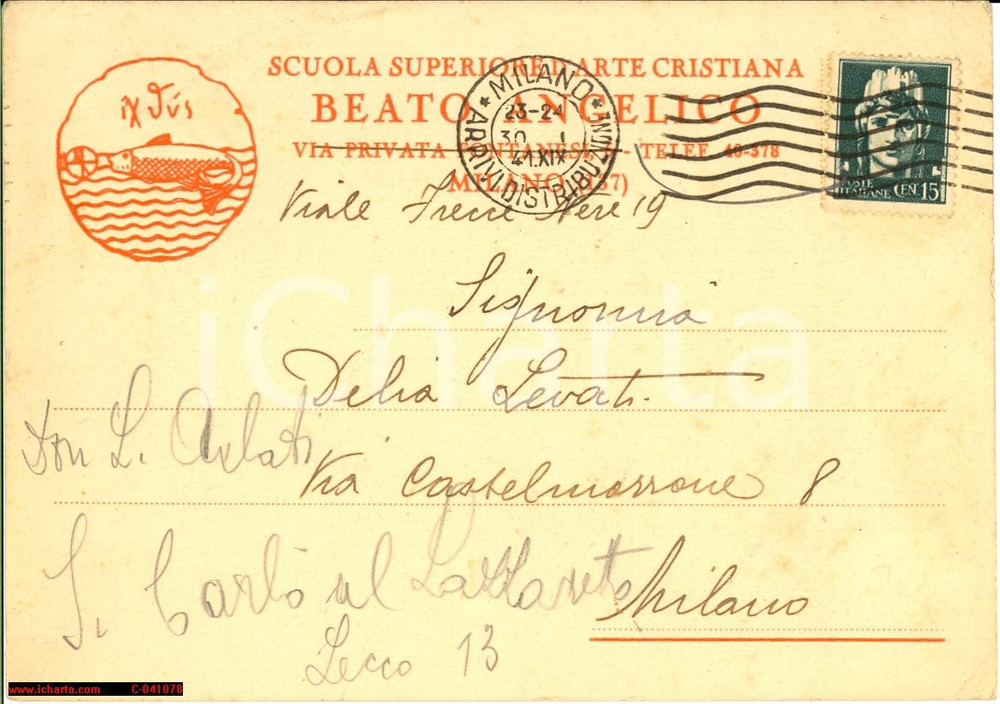 ἰχθύς
SCUOLA SUPERIORE D'ARTE CRISTIANA
BEATO ANGELICO
VIA PRIVATA FONTANESI - TELEF. 40-378
MILANO (137)
Viale Frece Nere 19
MILANO
23-24
30 I
41.XIX
ARRIVI DISTRIBUZIONE
POSTE ITALIANE CEN. 15
Signorina
Delia Levati
Via Castelmorrone 8
Milano
Don L. Arlati
S. Carlo al Lazzareto
Lecco 13
iCharta
www.icharta.com C-041078